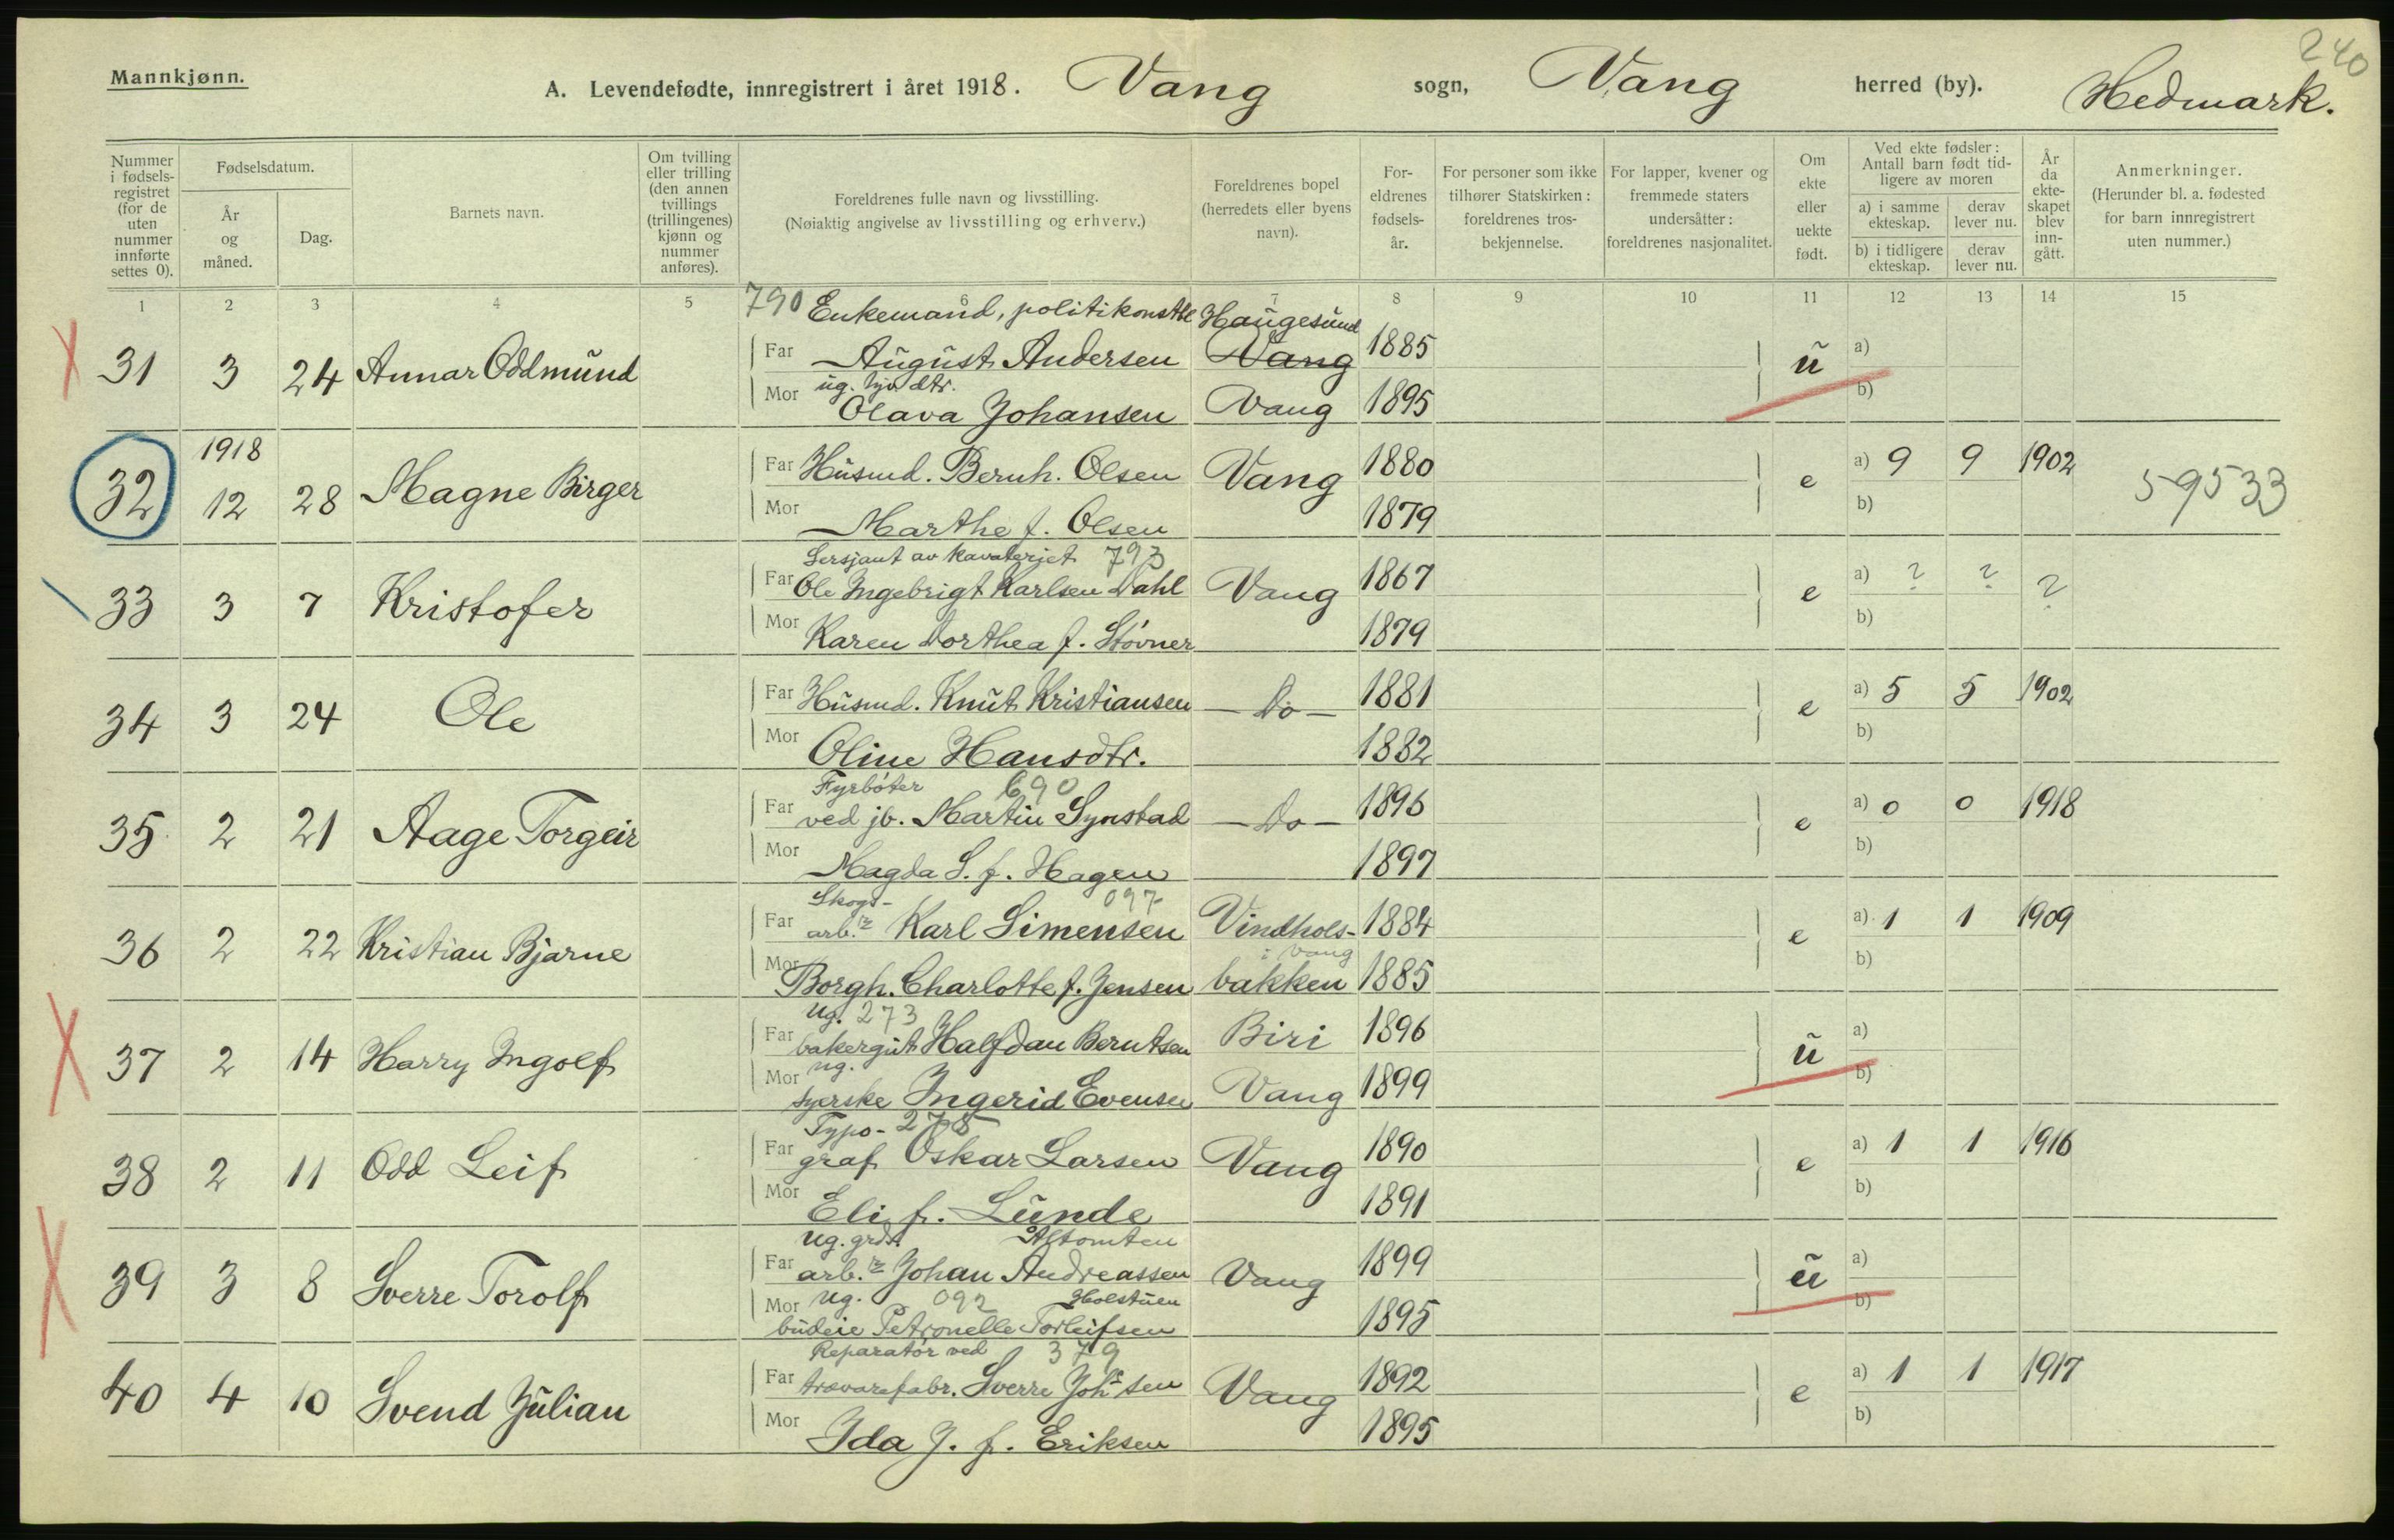 240
Mannkjønn.
A. Levendefødte, innregistrert i året 1918. Vang sogn, Vang herred (by). Hedmark.
Nummer i fødsels-registret (for de uten nummer innførte settes 0).
Fødselsdatum.
År og måned.
Dag.
Barnets navn.
Om tvilling eller trilling (den annen tvillings (trillingenes) kjønn og nummer anføres).
Foreldrenes fulle navn og livsstilling.
(Nøiaktig angivelse av livsstilling og erhverv.)
Foreldrenes bopel (herredets eller byens navn).
For-eldrenes fødsels-år.
For personer som ikke tilhører Statskirken: foreldrenes tros-bekjennelse.
For lapper, kvener og fremmede staters undersåtter: foreldrenes nasjonalitet.
Om ekte eller uekte født.
Ved ekte fødsler: Antall barn født tid-ligere av moren
a) i samme ekteskap.
derav lever nu.
b) i tidligere ekteskap.
derav lever nu.
År da ekte-skapet blev inn-gått.
Anmerkninger.
(Herunder bl. a. fødested for barn innregistrert uten nummer.)
1 2 3 4 5 6 7 8 9 10 11 12 13 14 15
790 Enkemand, politikonstbl Haugesund
31 3 24 Annar Oddmund Far August Andersen Vang 1885 u a)
ug. hjv. dtr.
Mor Olava Johansen Vang 1895 b)
1918
32 12 28 Magne Birger Far Husmd. Bernh. Olsen Vang 1880 e a) 9 9 1902 59533
Mor Marthe f. Olsen 1879 b)
Sersjant av kavaleriet 793
33 3 7 Kristofer Far Ole Ingebrigt Karlsen Dahl Vang 1867 e a) ? ? ?
Mor Karen Dorthea f. Støvner 1879 b)
34 3 24 Ole Far Husmd. Knut Kristiansen - Do - 1881 e a) 5 5 1902
Mor Oline Hansdtr. 1882 b)
Fyrbøter 690
35 2 21 Aage Torgeir Far ved jb. Martin Synstad - Do - 1896 e a) 0 0 1918
Mor Magda S. f. Hagen 1897 b)
Skogs- 097
36 2 22 Kristian Bjarne Far arb.r Karl Simensen Vindhols- 1884 e a) 1 1 1909
i Vang
Mor Borgh. Charlotte f. Jensen bakken 1885 b)
Ug. 273
37 2 14 Harry Ingolf Far bakergut Halfdan Berntsen Biri 1896 u a)
ug.
Mor syerske Ingerid Evensen Vang 1899 b)
Typo- 278
38 2 11 Odd Leif Far graf Oskar Larsen Vang 1890 e a) 1 1 1916
Mor Eli f. Lunde 1891 b)
Ug. grds. Altomten
39 3 8 Sverre Torolf Far arb.r Johan Andreassen Vang 1899 u a)
Ug. 092 Holstuen
Mor budeie Petronelle Torleifsen 1895 b)
Reparatør ved 379
40 4 10 Svend Julian Far trævarefabr. Sverre Johsen Vang 1892 e a) 1 1 1917
Mor Ida J. f. Eriksen 1895 b)